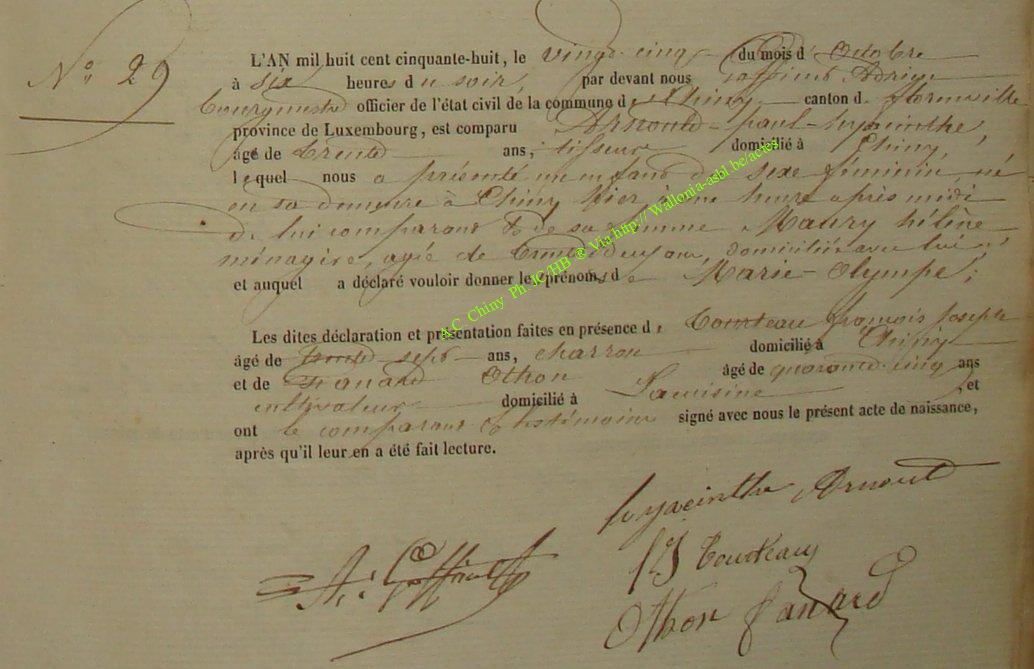 N° 29
L'AN mil huit cent cinquante-huit, le vingt cinq du mois d' Octobre
à six heures du soir, par devant nous Goffinet Adrien
bourgmestre officier de l'état civil de la commune de Chiny, canton d. florenville
province de Luxembourg, est comparu Arnould paul-hyacinthe,
âgé de trente ans, tisseur domicilié à Chiny,
lequel nous a présenté un enfant de sexe féminin, né
en sa demeure à Chiny hier à une heure après midi
de lui comparant & de sa femme Maury hélène
ménagère, agée de trente deux ans, domiciliée avec lui,
et auquel a déclaré vouloir donner les prénoms de Marie-Olympe;
Les dites déclaration et présentation faites en présence de Courteau françois joseph
âgé de trente sept ans, charron domicilié à Chiny
et de Fanard Othon âgé de quarante cinq ans
cultivateur domicilié à Lacuisine et
ont le comparant & les témoins signé avec nous le présent acte de naissance,
après qu'il leur en a été fait lecture.
hyacinthe Arnould
A. Goffinet
fj Courteau
Othon Fanard
A.C. Chiny Ph. JC/HB ® Via http:// Wallonia-asbl.be/actes